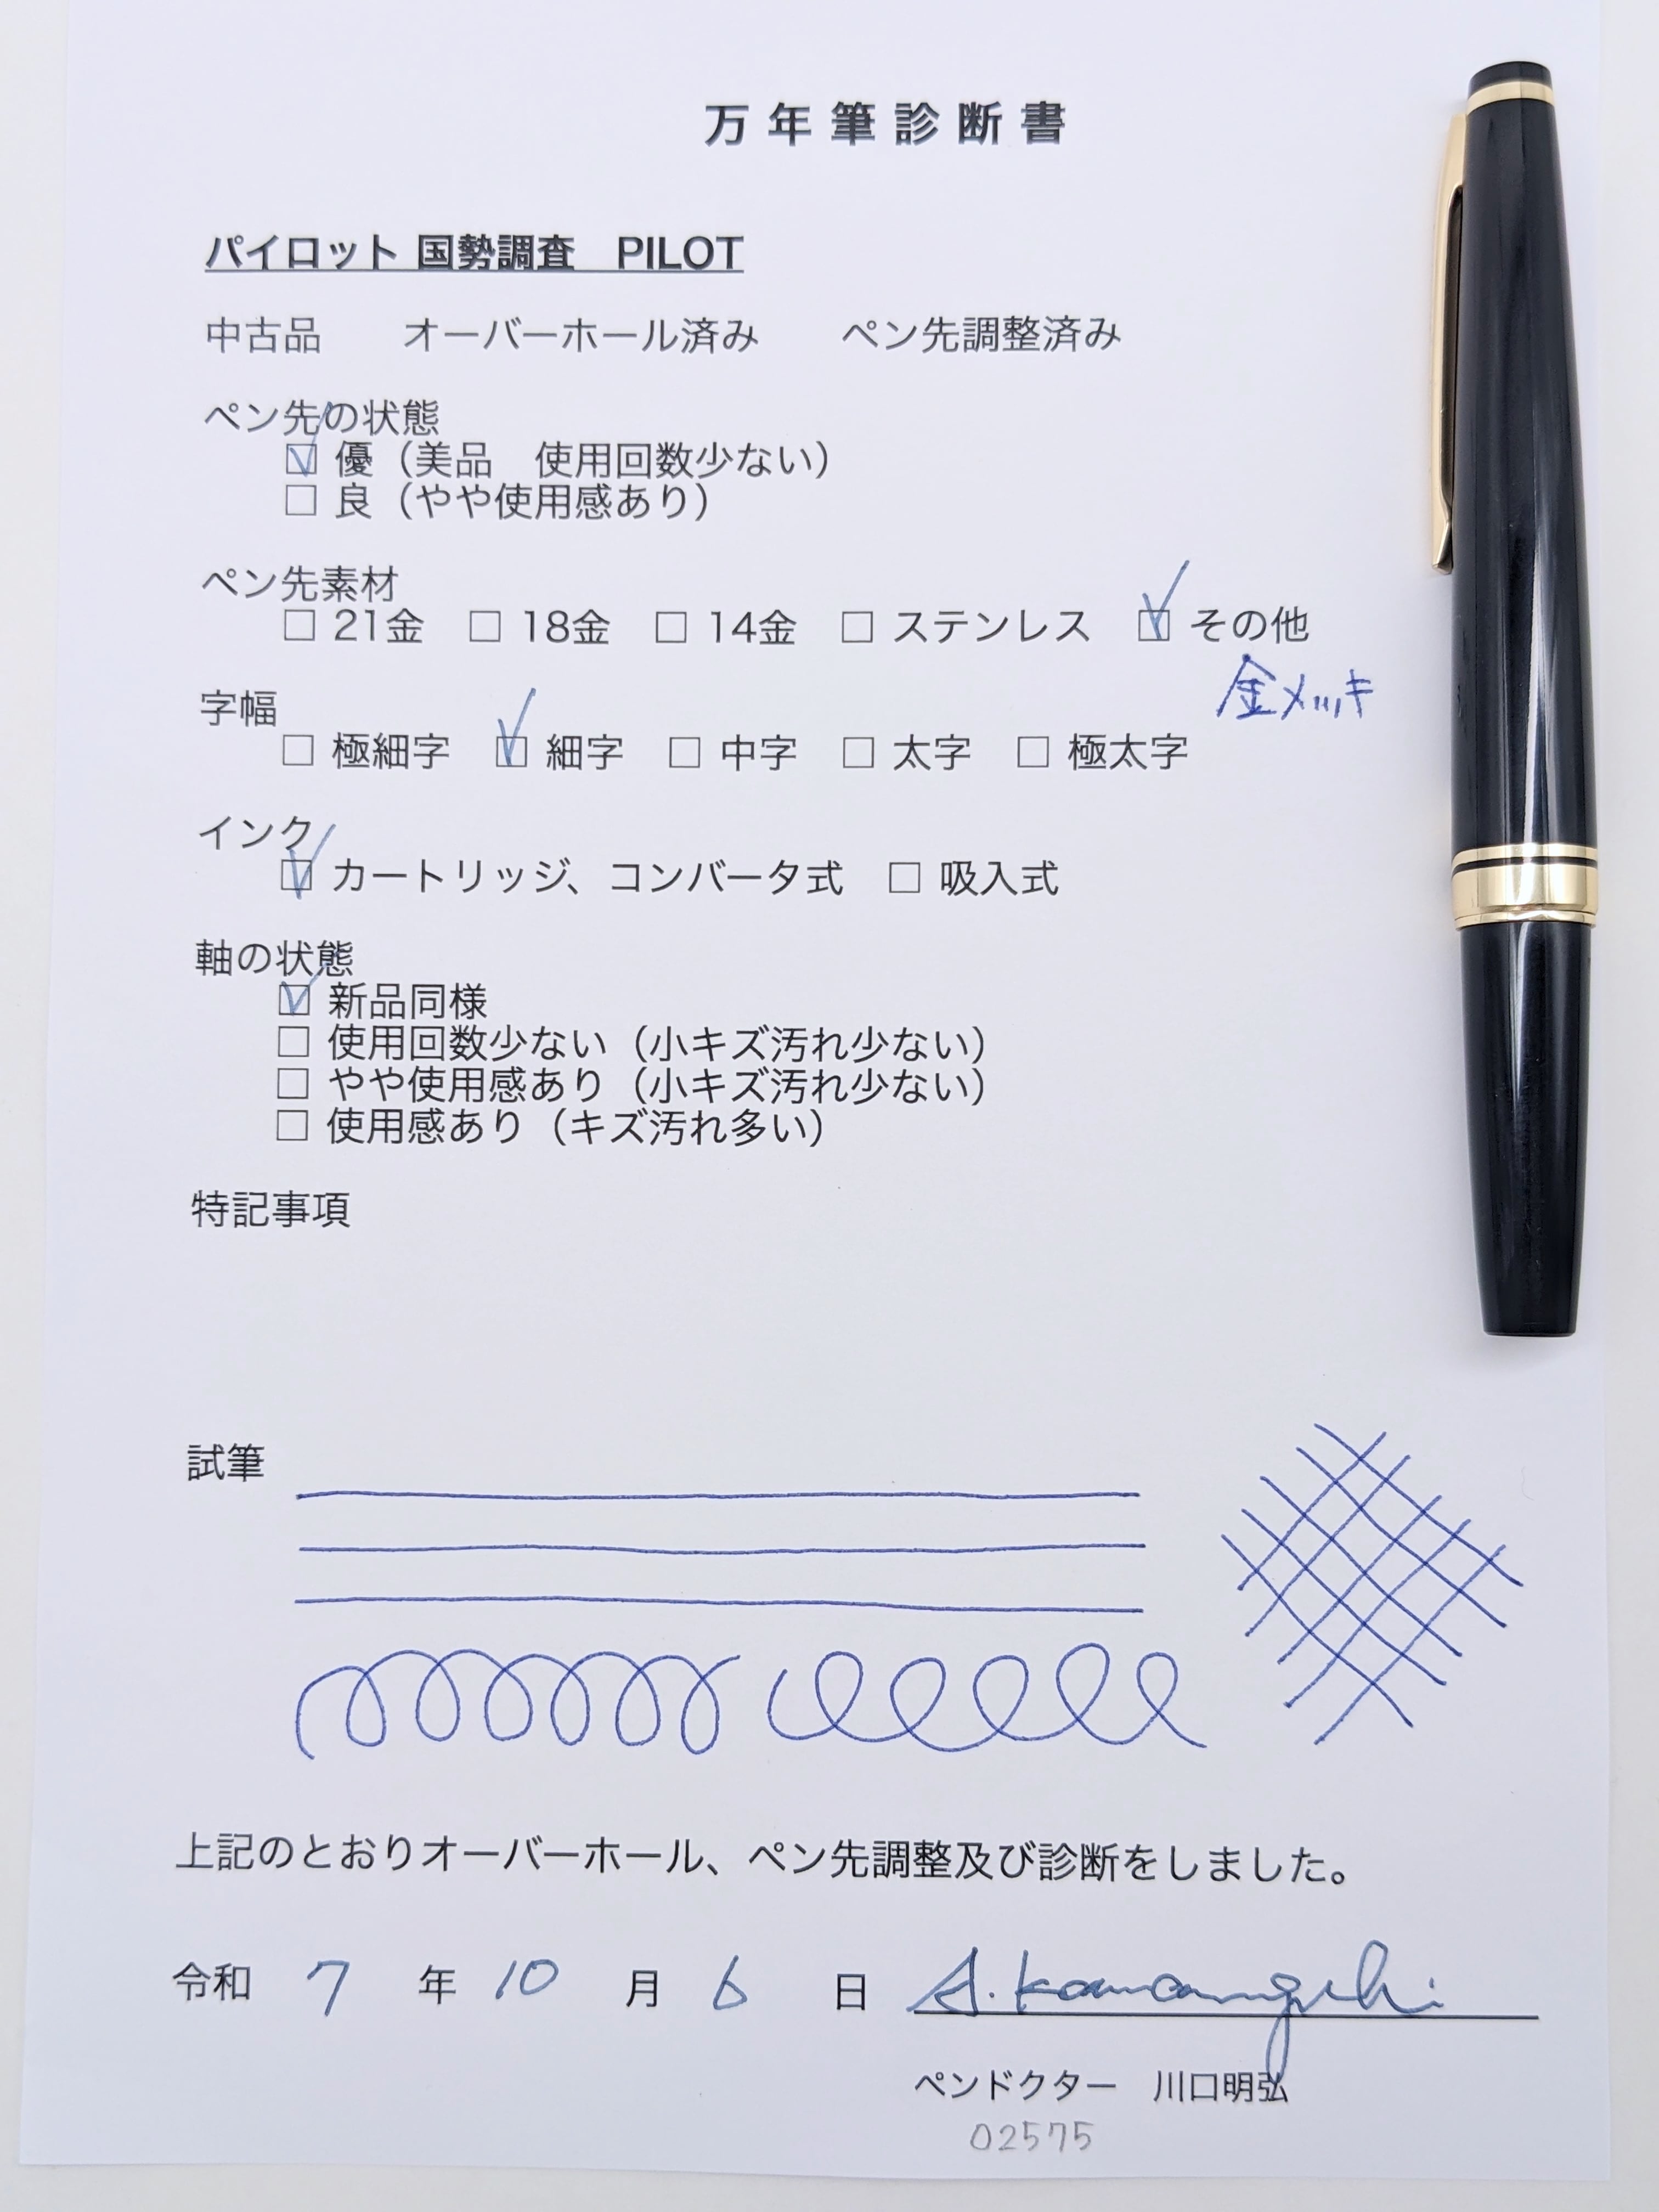 万年筆診断書
パイロット 国勢調査　PILOT
中古品　　オーバーホール済み　　ペン先調整済み
ペン先の状態
☑ 優（美品　使用回数少ない）
□ 良（やや使用感あり）
ペン先素材
□ 21金　□ 18金　□ 14金　□ ステンレス　☑ その他
金メッキ
字幅
□ 極細字　☑ 細字　□ 中字　□ 太字　□ 極太字
インク
☑ カートリッジ、コンバータ式　□ 吸入式
軸の状態
☑ 新品同様
□ 使用回数少ない（小キズ汚れ少ない）
□ やや使用感あり（小キズ汚れ少ない）
□ 使用感あり（キズ汚れ多い）
特記事項
試筆
上記のとおりオーバーホール、ペン先調整及び診断をしました。
令和　7　年　10　月　6　日　A. Kawaguchi
ペンドクター　川口明弘
02575